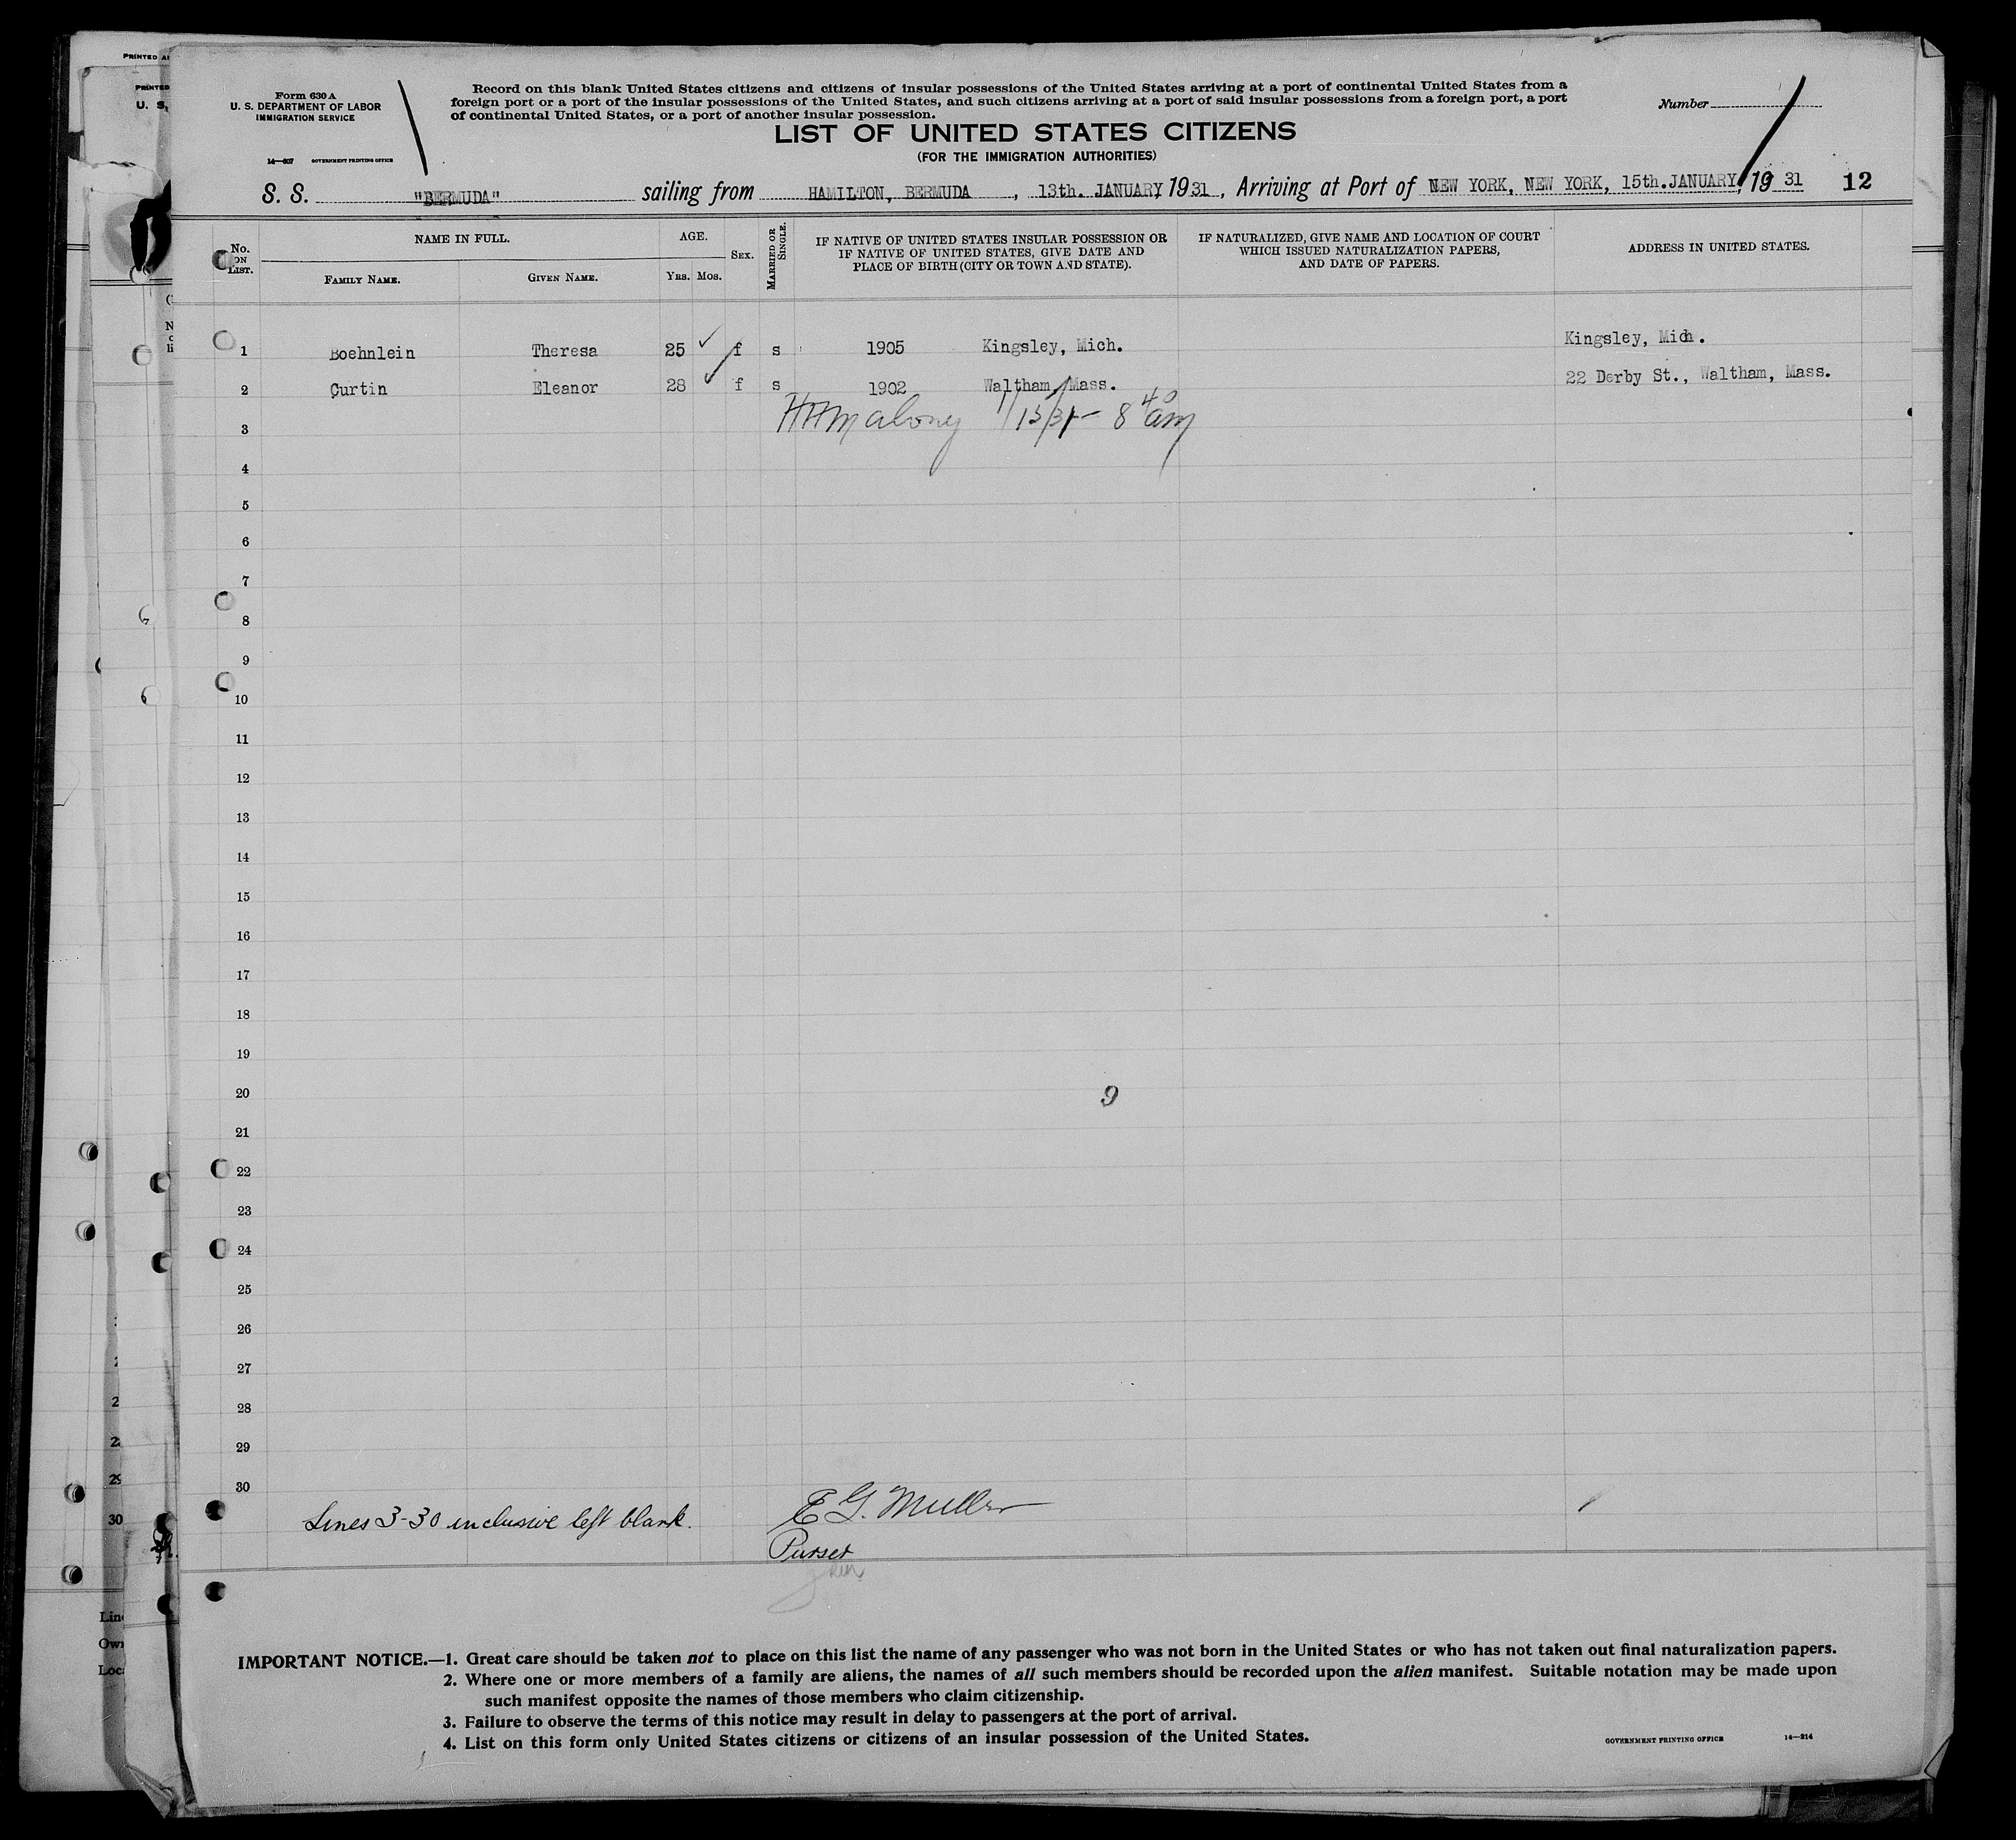 PRINTED
U. S.
Form 630 A
U. S. DEPARTMENT OF LABOR
IMMIGRATION SERVICE
14—607 GOVERNMENT PRINTING OFFICE
Record on this blank United States citizens and citizens of insular possessions of the United States arriving at a port of continental United States from a
foreign port or a port of the insular possessions of the United States, and such citizens arriving at a port of said insular possessions from a foreign port, a port
of continental United States, or a port of another insular possession.
Number
LIST OF UNITED STATES CITIZENS
(FOR THE IMMIGRATION AUTHORITIES)
S. S. "BERMUDA" sailing from HAMILTON, BERMUDA, 13th. JANUARY, 1931, Arriving at Port of NEW YORK, NEW YORK, 15th. JANUARY, 1931 12
No. ON LIST.
NAME IN FULL.
FAMILY NAME.
GIVEN NAME.
AGE.
YRS. MOS.
SEX.
MARRIED OR SINGLE.
IF NATIVE OF UNITED STATES INSULAR POSSESSION OR
IF NATIVE OF UNITED STATES, GIVE DATE AND
PLACE OF BIRTH (CITY OR TOWN AND STATE).
IF NATURALIZED, GIVE NAME AND LOCATION OF COURT
WHICH ISSUED NATURALIZATION PAPERS,
AND DATE OF PAPERS.
ADDRESS IN UNITED STATES.
1 Boehnlein Theresa 25 ✓ f s 1905 Kingsley, Mich. Kingsley, Mich.
2 Curtin Eleanor 28 ✓ f s 1902 Waltham, Mass. 22 Derby St., Waltham, Mass.
3 HHMalony 1/15/31 - 8 40 am
4
5
6
7
8
9
10
11
12
13
14
15
16
17
18
19
20 9
21
22
23
24
25
26
27
28
29
30
Lines 3-30 inclusive left blank. E G. Muller
Purser
IMPORTANT NOTICE.—1. Great care should be taken not to place on this list the name of any passenger who was not born in the United States or who has not taken out final naturalization papers.
2. Where one or more members of a family are aliens, the names of all such members should be recorded upon the alien manifest. Suitable notation may be made upon
such manifest opposite the names of those members who claim citizenship.
3. Failure to observe the terms of this notice may result in delay to passengers at the port of arrival.
4. List on this form only United States citizens or citizens of an insular possession of the United States.
GOVERNMENT PRINTING OFFICE 14—214